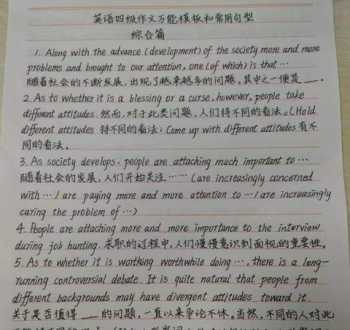 英语四级作文万能模板和常用句型
综合篇
1. Along with the advance (development) of the society more and more
problems and brought to our attention, one (of which) is that …
随着社会的不断发展，出现了越来越多的问题，其中之一便是 ____。
2. As to whether it is a blessing or a curse, however, people take
different attitudes. 然而，对于此类问题，人们持不同的看法。(Hold
different attitudes 持不同的看法; Come up with different attitudes 有不
同的看法。
3. As society develops, people are attaching much important to …
随着社会的发展，人们开始关注…… (are increasingly concerned
with … / are paying more and more attention to … / are increasingly
caring the problem of …)
4. People are attaching more and more importance to the interview
during job hunting. 求职的过程中，人们慢慢意识到面试的重要性。
5. As to whether it is working worthwhile doing …, there is a long-
running controversial debate. It is quite natural that people from
different backgrounds may have divergent attitudes toward it.
关于是否值得 ____ 的问题，一直以来争论不休。当然，不同的人对此